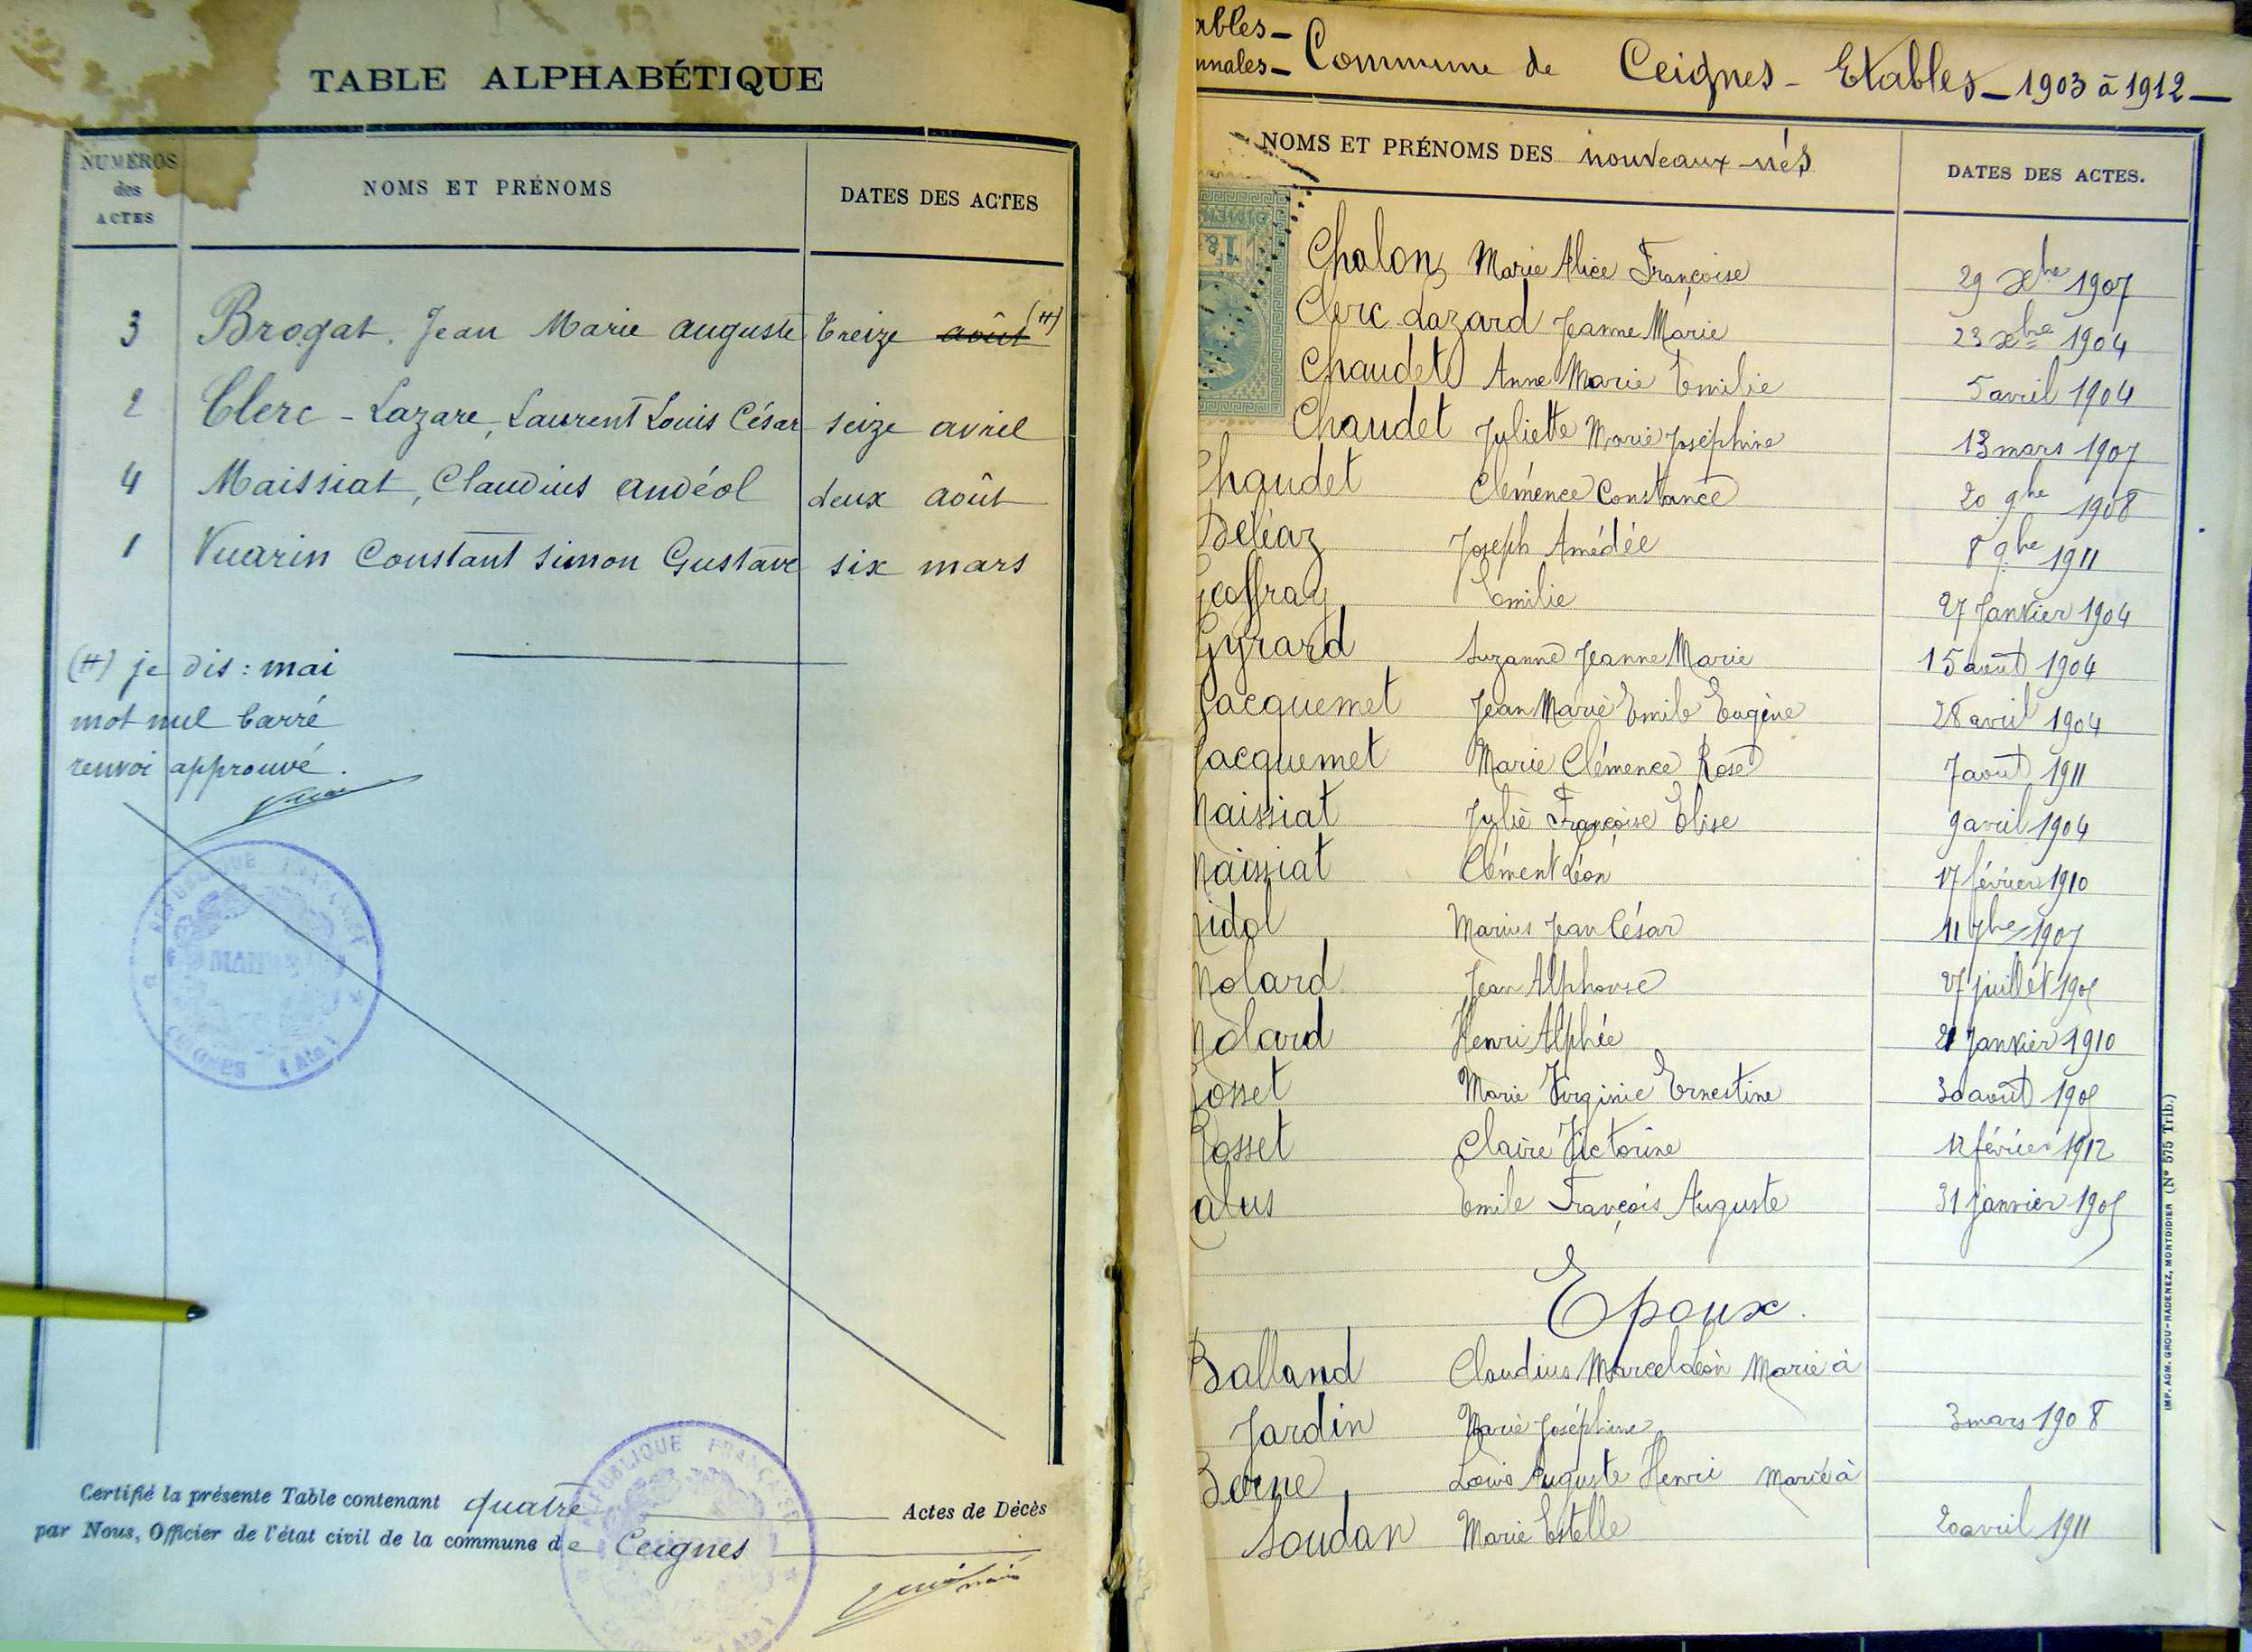 TABLE ALPHABÉTIQUE
NUMÉROS des ACTES
NOMS ET PRÉNOMS
DATES DES ACTES
3 Brogat, Jean Marie Auguste treize août (H)
2 Clerc - Lazare, Laurent Louis César seize avril
4 Maissiat, Claudius Andéol deux août
1 Vuarin Constant Simon Gustave six mars
(H) je dis : mai
mot nul barré
renvoi approuvé.
RÉPUBLIQUE FRANÇAISE
MAIRIE
CEIGNES (Ain)
Certifié la présente Table contenant quatre Actes de Décès
par Nous, Officier de l'état civil de la commune de Ceignes
RÉPUBLIQUE FRANÇAISE
ables -
nnales - Commune de Ceignes - Etables - 1903 à 1912 -
NOMS ET PRÉNOMS DES nouveaux-nés
DATES DES ACTES.
Chalon Marie Alice Françoise 29 xbre 1907
Clerc Lazard Jeanne Marie 23 xbre 1904
Chaudet Anne Marie Emilie 5 avril 1904
Chaudet Juliette Marie Joséphine 13 mars 1907
Chaudet Clémence Constance 20 9bre 1908
Déléaz Joseph Amédée 8 9bre 1911
Geoffray Emilie 27 Janvier 1904
Gyrard Suzanne Jeanne Marie 15 août 1904
Jacquemet Jean Marie Emile Eugène 28 avril 1904
Jacquemet Marie Clémence Rose 7 août 1911
Maissiat Julie Françoise Elise 9 avril 1904
Maissiat Clément Léon 17 février 1910
idol Marius Jean César 11 7bre 1907
olard Jean Alphonse 27 juillet 1905
olard Henri Alphée 21 Janvier 1910
osset Marie Virginie Ernestine 30 août 1905
Rosset Claire Victorine 12 février 1912
alus Emile François Auguste 31 janvier 1905
Epoux.
Balland Claudius Marcel Léon Marié à
Jardin Marie Joséphine 3 mars 1908
Berne Louis Auguste Henri Marié à
Soudan Marie Estelle 20 avril 1911
IMP. ADM. GROU-RADENEZ, MONTDIDIER (N° 575 Trib.)